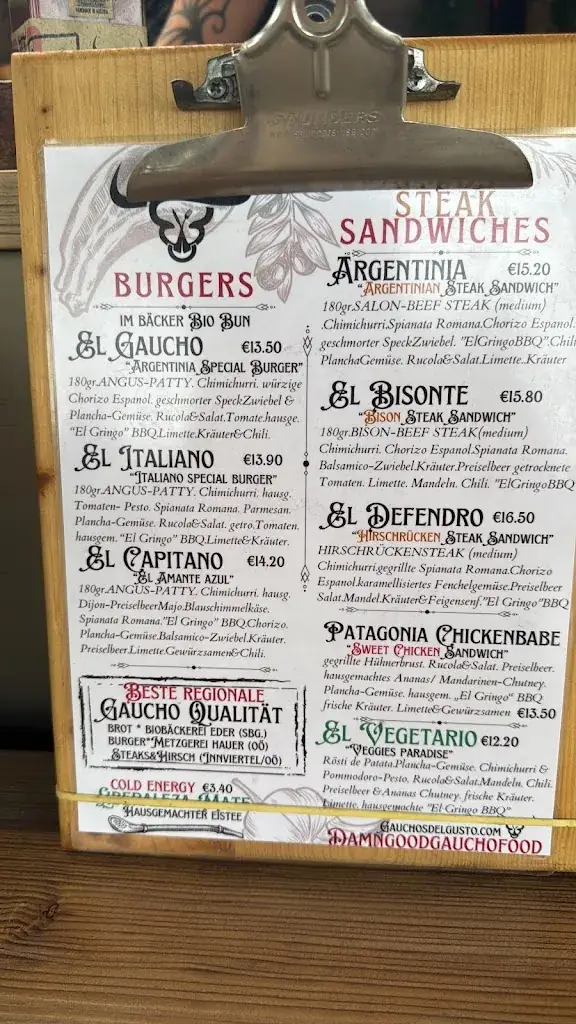 SAUNDERS
BURGERS
IM BÄCKER BIO BUN
EL GAUCHO €13.50
"ARGENTINIA SPECIAL BURGER"
180gr.ANGUS-PATTY. Chimichurri. würzige
Chorizo Espanol. geschmorter SpeckZwiebel &
Plancha-Gemüse. Rucola&Salat.Tomate.hausge.
"El Gringo" BBQ.Limette.Kräuter&Chili.
EL ITALIANO €13.90
"ITALIANO SPECIAL BURGER"
180gr.ANGUS-PATTY. Chimichurri. hausg.
Tomaten- Pesto. Spianata Romana. Parmesan.
Plancha-Gemüse. Rucola&Salat. getro.Tomaten.
hausgem. "El Gringo" BBQ.Limette&Kräuter.
EL CAPITANO €14.20
"EL AMANTE AZUL"
180gr.ANGUS-PATTY. Chimichurri. hausg.
Dijon-PreiselbeerMajo.Blauschimmelkäse.
Spianata Romana."El Gringo" BBQ.Chorizo.
Plancha-Gemüse.Balsamico-Zwiebel.Kräuter.
Preiselbeer.Limette.Gewürzsamen&Chili.
BESTE REGIONALE
GAUCHO QUALITÄT
BROT * BIOBÄCKEREI EDER (SBG.)
BURGER*METZGEREI HAUER (OÖ)
STEAKS&HIRSCH (INNVIERTEL/OÖ)
COLD ENERGY €3.40
HAUSGEMACHTER EISTEE
STEAK
SANDWICHES
ARGENTINIA €15.20
"ARGENTINIAN STEAK SANDWICH"
180gr.SALON-BEEF STEAK (medium)
.Chimichurri.Spianata Romana.Chorizo Espanol.
geschmorter SpeckZwiebel. "ElGringoBBQ".Chili
PlanchaGemüse. Rucola&Salat.Limette..Kräuter
EL BISONTE €15.80
"BISON STEAK SANDWICH"
180gr.BISON-BEEF STEAK(medium)
Chimichurri. Chorizo Espanol.Spianata Romana.
Balsamico-Zwiebel.Kräuter.Preiselbeer getrocknete
Tomaten. Limette. Mandeln. Chili. "ElGringoBBQ
EL DEFENDRO €16.50
"HIRSCHRÜCKEN STEAK SANDWICH"
HIRSCHRÜCKENSTEAK (medium)
Chimichurri.gegrillte Spianata Romana.Chorizo
Espanol.karamellisiertes Fenchelgemüse.Preiselbeer
Salat.Mandel.Kräuter&Feigensenf."El Gringo"BBQ
PATAGONIA CHICKENBABE
"SWEET CHICKEN SANDWICH"
gegrillte Hühnerbrust. Rucola&Salat. Preiselbeer.
hausgemachtes Ananas/ Mandarinen-Chutney.
Plancha-Gemüse. hausgem. „El Gringo" BBQ
frische Kräuter. Limette&Gewürzsamen €13.50
EL VEGETARIO €12.20
"VEGGIES PARADISE"
Rösti de Patata.Plancha-Gemüse. Chimichurri &
Pommodoro-Pesto. Rucola&Salat.Mandeln. Chili.
Preiselbeer & Ananas Chutney. frische Kräuter.
Limette. hausgemochte "El Gringo BBQ"
GAUCHOSDELGUSTO.COM
DAMNGOODGAUCHOFOOD